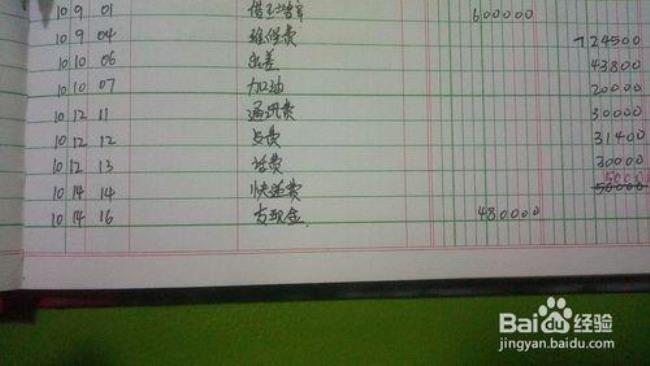 10 9 01 借 600000
10 9 04 维修费 724500
10 10 06 出差 43800
10 10 07 加油 20000
10 12 11 通讯费 30000
10 12 12 费 31400
10 12 13 话费 30000
5000
10 14 14 快递费 50000
10 14 16 支现金 480000
Baidu 经验
jingyan.baidu.com